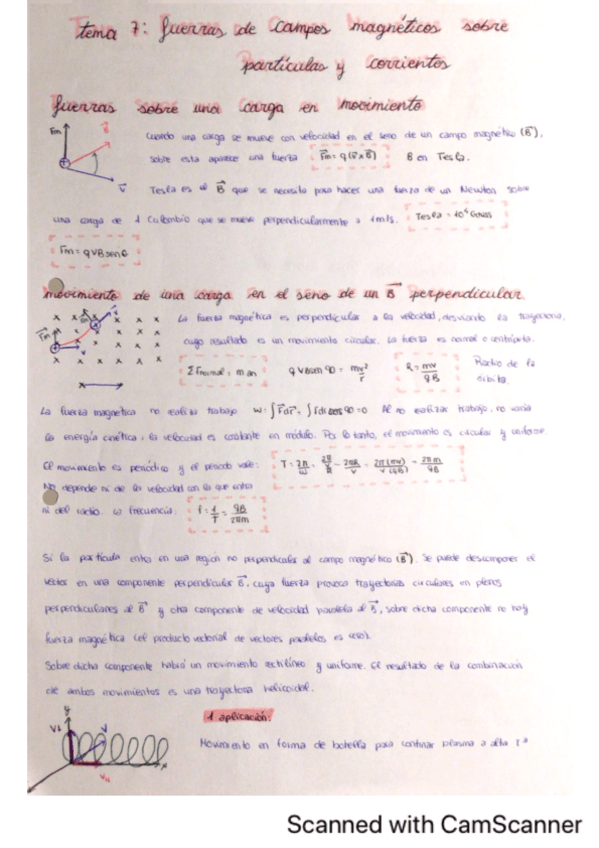 tema 7: fuerzas de campos magnéticos sobre
partículas y corrientes
fuerzas sobre una carga en movimiento
Cuando una carga se mueve con velocidad en el seno de un campo magnético (B⃗),
sobre esta aparece una fuerza Fm = q(v⃗ x B⃗) B en Tesla.
Tesla es el B⃗ que se necesita para hacer una fuerza de un Newton sobre
una carga de 1 Culombio que se mueve perpendicularmente a 1m/s. Tesla = 10⁴ Gauss
Fm = qVBsenθ
movimiento de una carga en el seno de un B⃗ perpendicular
La fuerza magnética es perpendicular a la velocidad, desviando la trayectoria,
cuyo resultado es un movimiento circular. La fuerza es normal o centrípeta.
ΣFnormal = m an q VBsen 90 = mv²/r R = mv/qB Radio de la
órbita.
La fuerza magnética no realiza trabajo W = ∫F⃗dr⃗ = ∫Fdr cos 90 = 0 Al no realizar trabajo, no varía
la energía cinética, la velocidad es constante en módulo. Por lo tanto, el movimiento es circular y uniforme.
El movimiento es periódico y el periodo vale: T = 2π/ω = = 2πR/v = 2π(mv)/v(qB) = 2πm/qB
No depende ni de la velocidad con la que entra
ni del radio. La frecuencia: f = 1/T = qB/2πm
Si la partícula entra en una región no perpendicular al campo magnético (B⃗). Se puede descomponer el
vector en una componente perpendicular B⃗, cuya fuerza provoca trayectorias circulares en planos
perpendiculares al B⃗ y otra componente de velocidad paralela al B⃗, sobre dicha componente no hay
fuerza magnética (el producto vectorial de vectores paralelos es cero).
Sobre dicha componente habrá un movimiento rectilíneo y uniforme. El resultado de la combinación
de ambos movimientos es una trayectoria helicoidal.
1 aplicación:
Movimiento en forma de botella para confinar plasma a alta Tª
Scanned with CamScanner